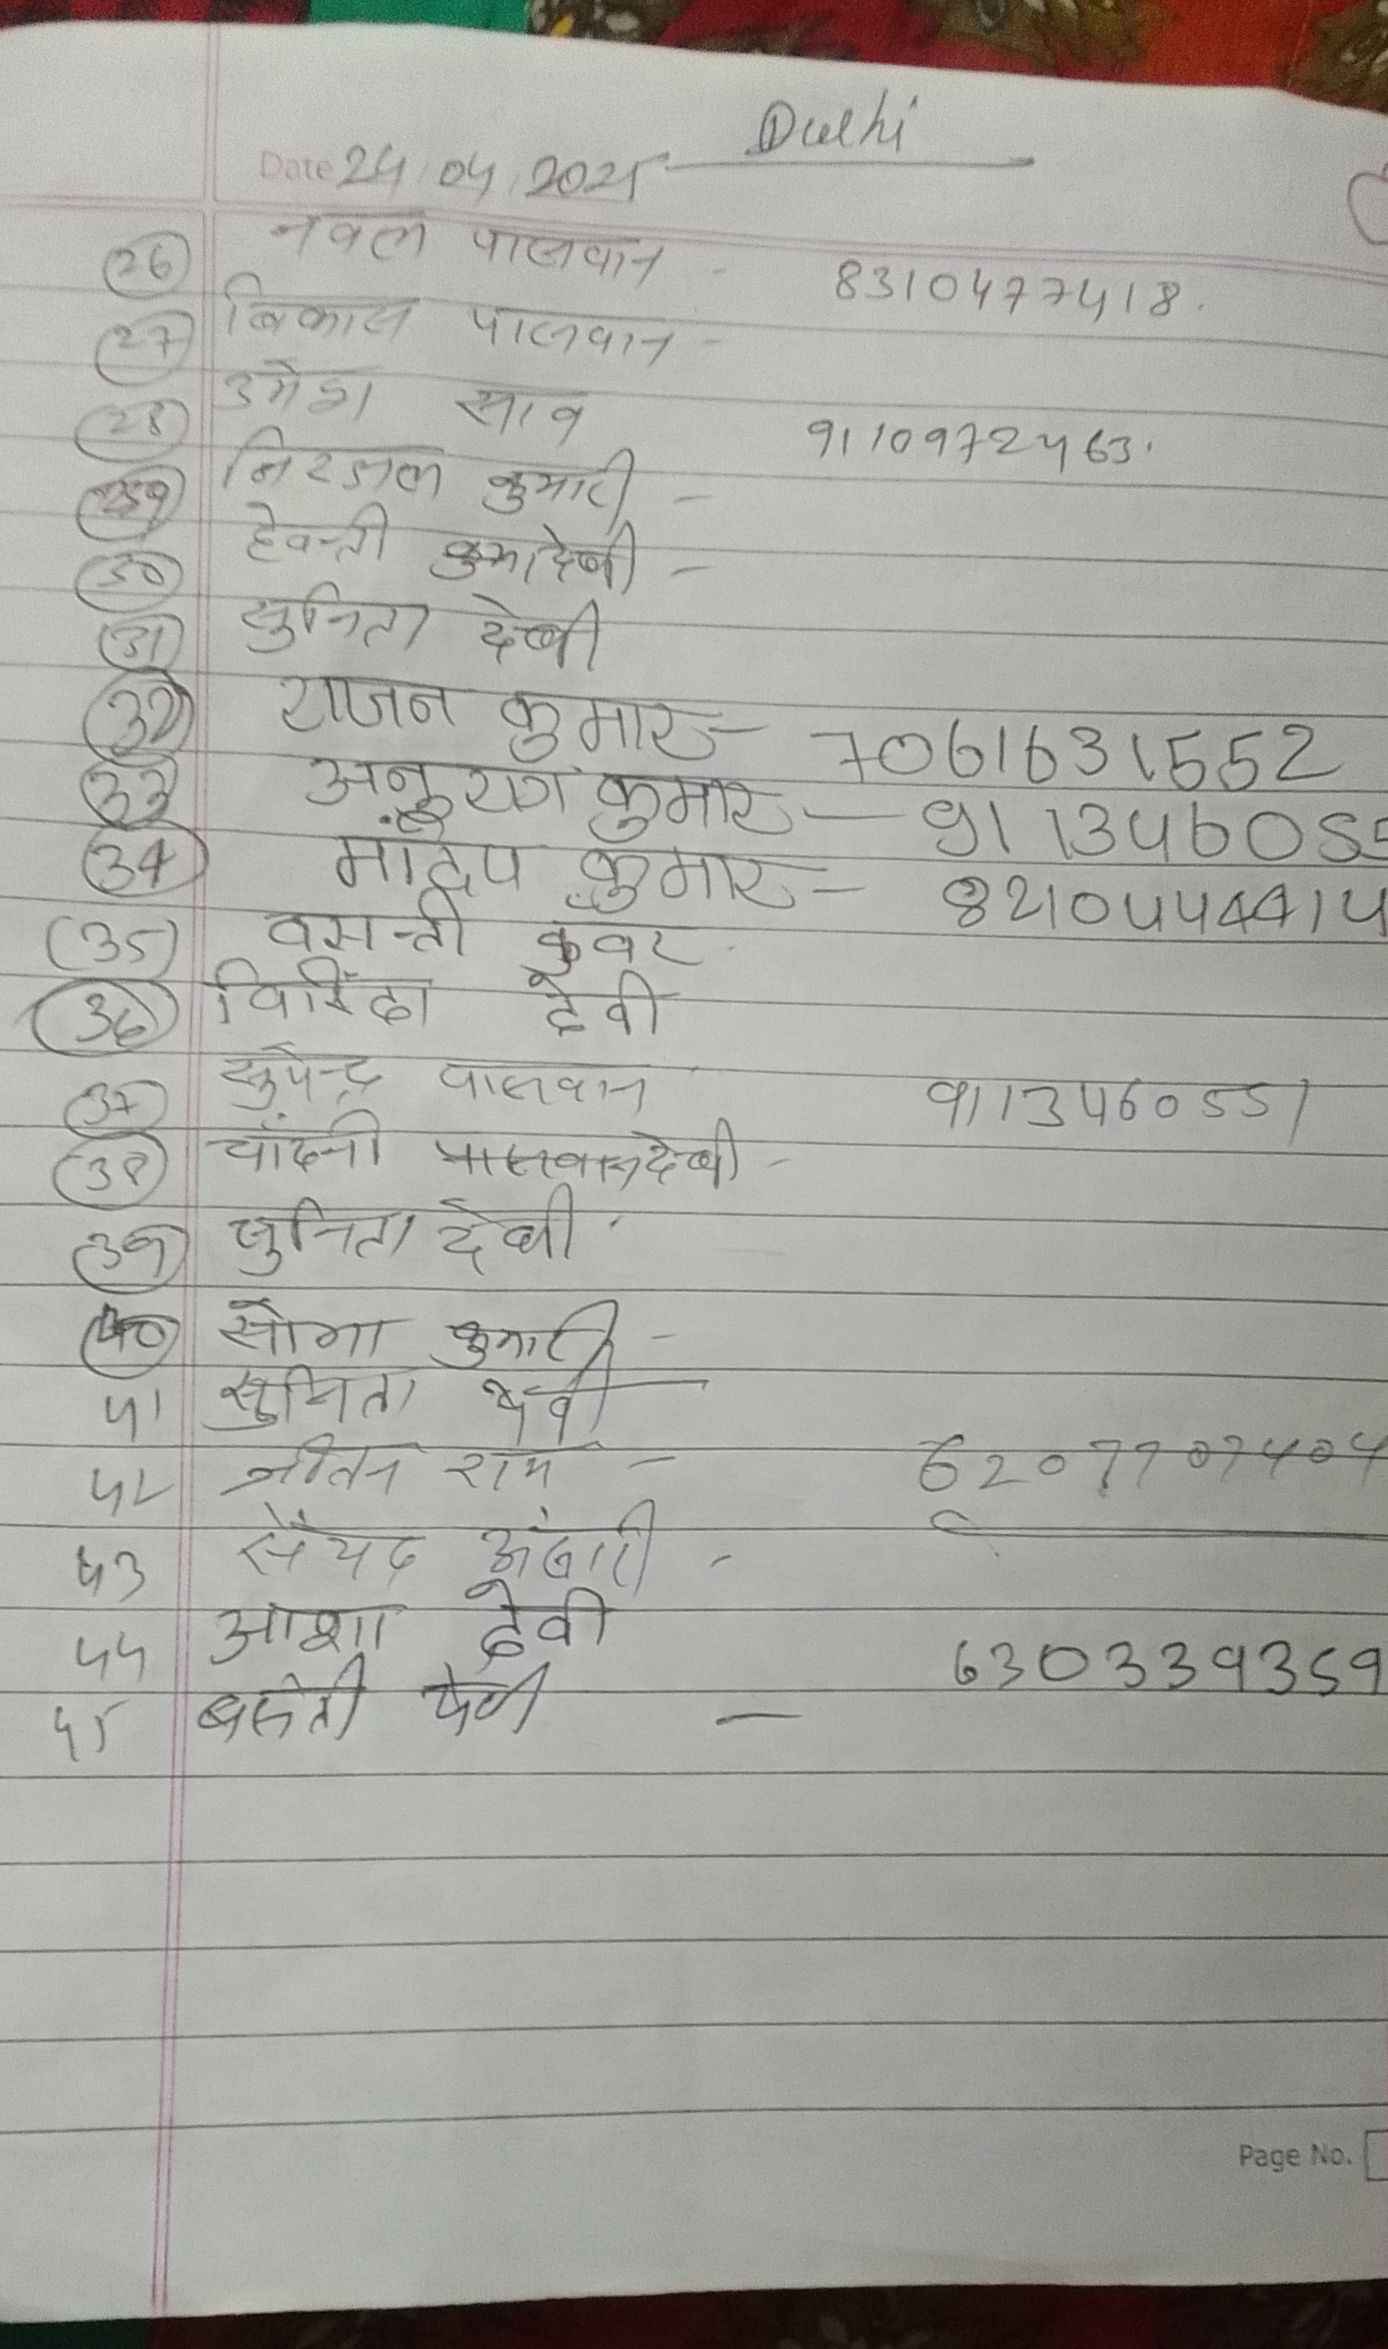 Delhi
Date 24/04/2025
26 नवल पासवान - 8310477418.
27 विकास पासवान -
28 उमेश साव 9110972463.
29 कुमारी -
30 देवी -
31 सुनिता देवी
32 राजन कुमार - 7061631552
33 अनुराग कुमार - 911346055
34 कुमार - 8210444414
35 वसन्ती कुवर
36 देवी
37 पासवान 9113460551
38 चाँदनी देवी -
39 पुनिता देवी
40 कुमारी -
41 सुमिता देवी
42 राम - 6207707404
43 सैयद अंसारी -
44 आशा देवी 630339359
45 बसंती देवी -
Page No.